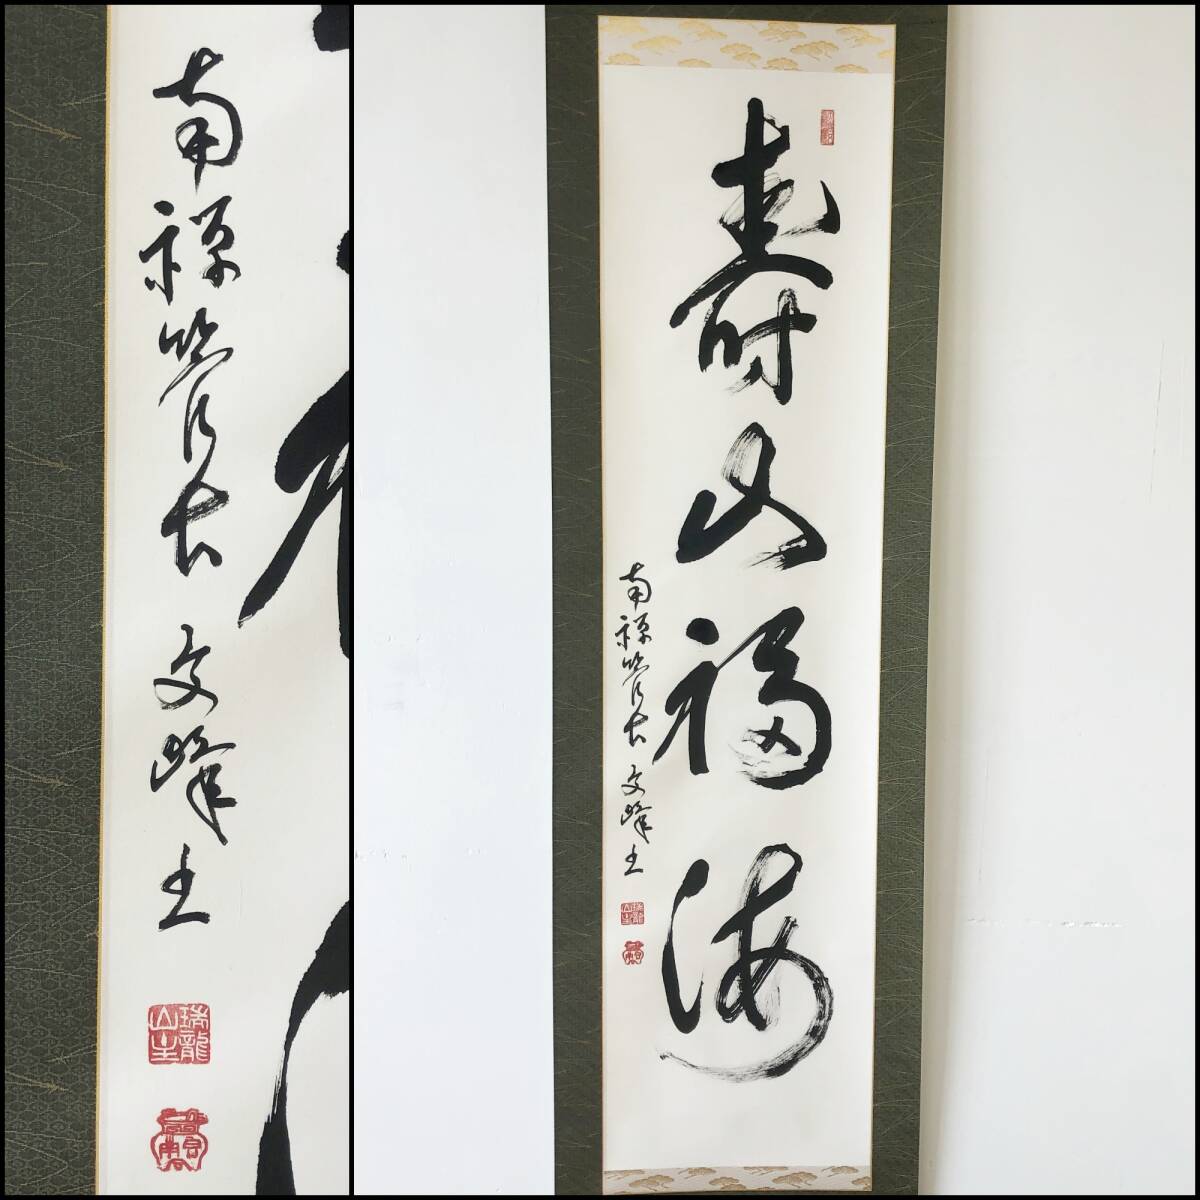 南禅管長 文峰書
瑞龍山主
寿山福海
南禅管長 文峰書
瑞龍山主